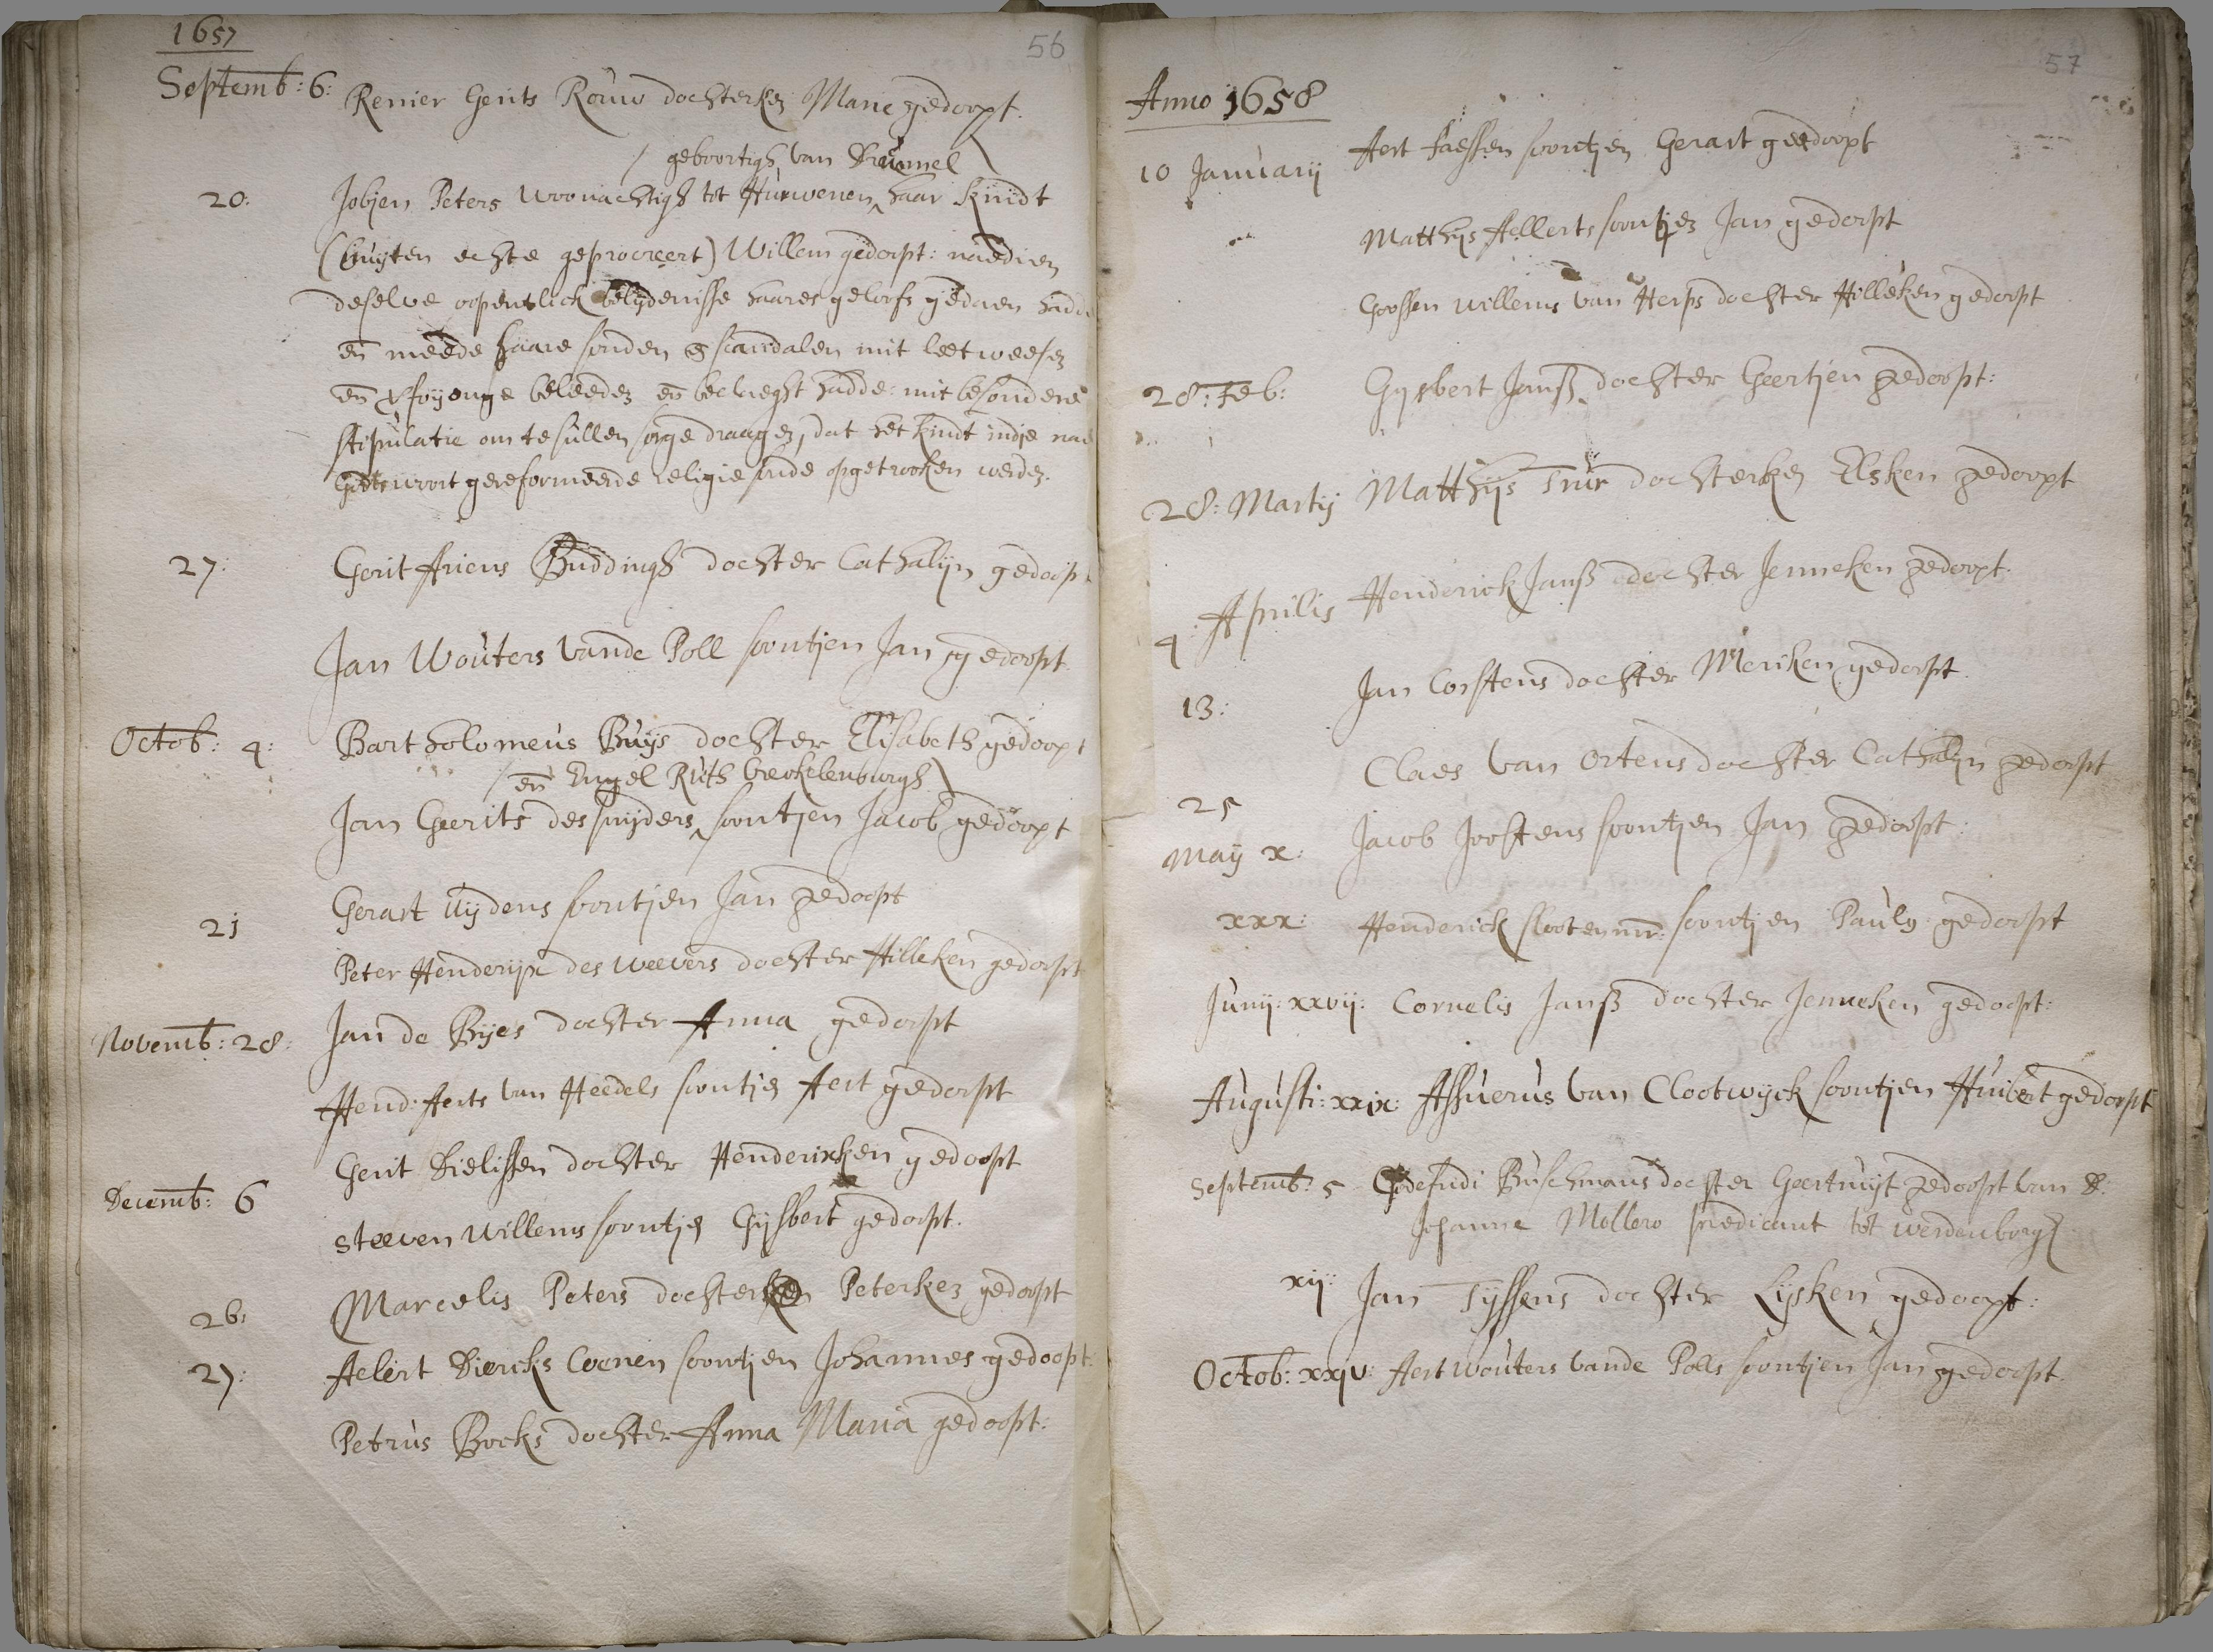 1657
56
Septemb: 6: Renier Gerits Rouw dochterken Marie gedoopt.
geboortigh van Drumel
20: Jobjen Peters woonachtigh tot Hurwenen haar kindt
(buyten echte geprocreert) Willem gedoopt: naedien
deselve oopentlick belijdenisse haares geloofs gedaen hadde
en meede haare sonden & scandalen mit leetweesen
en beleeden en beclaeght hadde: mit besondere
stipulatie om te sullen sorge draagen, dat het kindt indie nae
Godts woort gereformeerde religie soude opgetrocken werden.
27: Gerit Ariens Buddingh dochter Cathalijn gedoopt
Jan Wouters vande Poll soontjen Jan gedoopt.
Octob: 4: Bartholomeus Buijs dochter Elisabeth gedoopt
en Engel Ruth Breokelenburgh
Jan Geerits des snijders soontjen Jacob gedoopt
21 Gerart Uijdens soontjen Jan gedoopt
Peter Henderijx des weevers dochter Hilleken gedoopt
Novemb: 28: Jan de Bijes dochter Anna gedoopt
Hend: Aerts van Heedels soontjen Aert gedoopt
Gerit Dielissen dochter Henderixken gedoopt
Decemb: 6 Steeven Willems soontjen Gijsbert gedoopt.
26: Marcelis Peters dochterken Peterken gedoopt
27: Aelert Diercks Coenen soontjen Johannes gedoopt:
Petrus Boeks dochter Anna Maria gedoopt:
57
Anno 1658
10 Januarij Aert Faessen soontjen Gerart gedoopt
Matthijs Aellerts soontjen Jan gedoopt
Goossen Willems van Herps dochter Hilleken gedoopt
28: Feb: Gysbert Janß dochter Geertjen gedoopt:
28: Martij Matthijs Tuur dochterken Elsken gedoopt
4: Aprilis Henderick Janß dochter Jenneken gedoopt.
13: Jan Corstens dochter Meriken gedoopt.
Claes van Ortens dochter Cathalijn gedoopt
25
May x: Jacob Joostens soontjen Jan gedoopt:
xxx: Henderick soontjen Paulus gedoopt
Junij: xxvij: Cornelis Janß dochter Jenneken gedoopt:
Augusti: xxix: Assuerus van Clootwijck soontjen Huibert gedoopt
Septemb: 5 Godefridi Buschmans dochter Geertruijt gedoopt van D:
Johanne Mollero predicant tot werdenborgh
xij: Jan Tijssens dochter Lijsken gedoopt:
Octob: xxiv: Aert Wouters vande Polls soontjen Jan gedoopt.